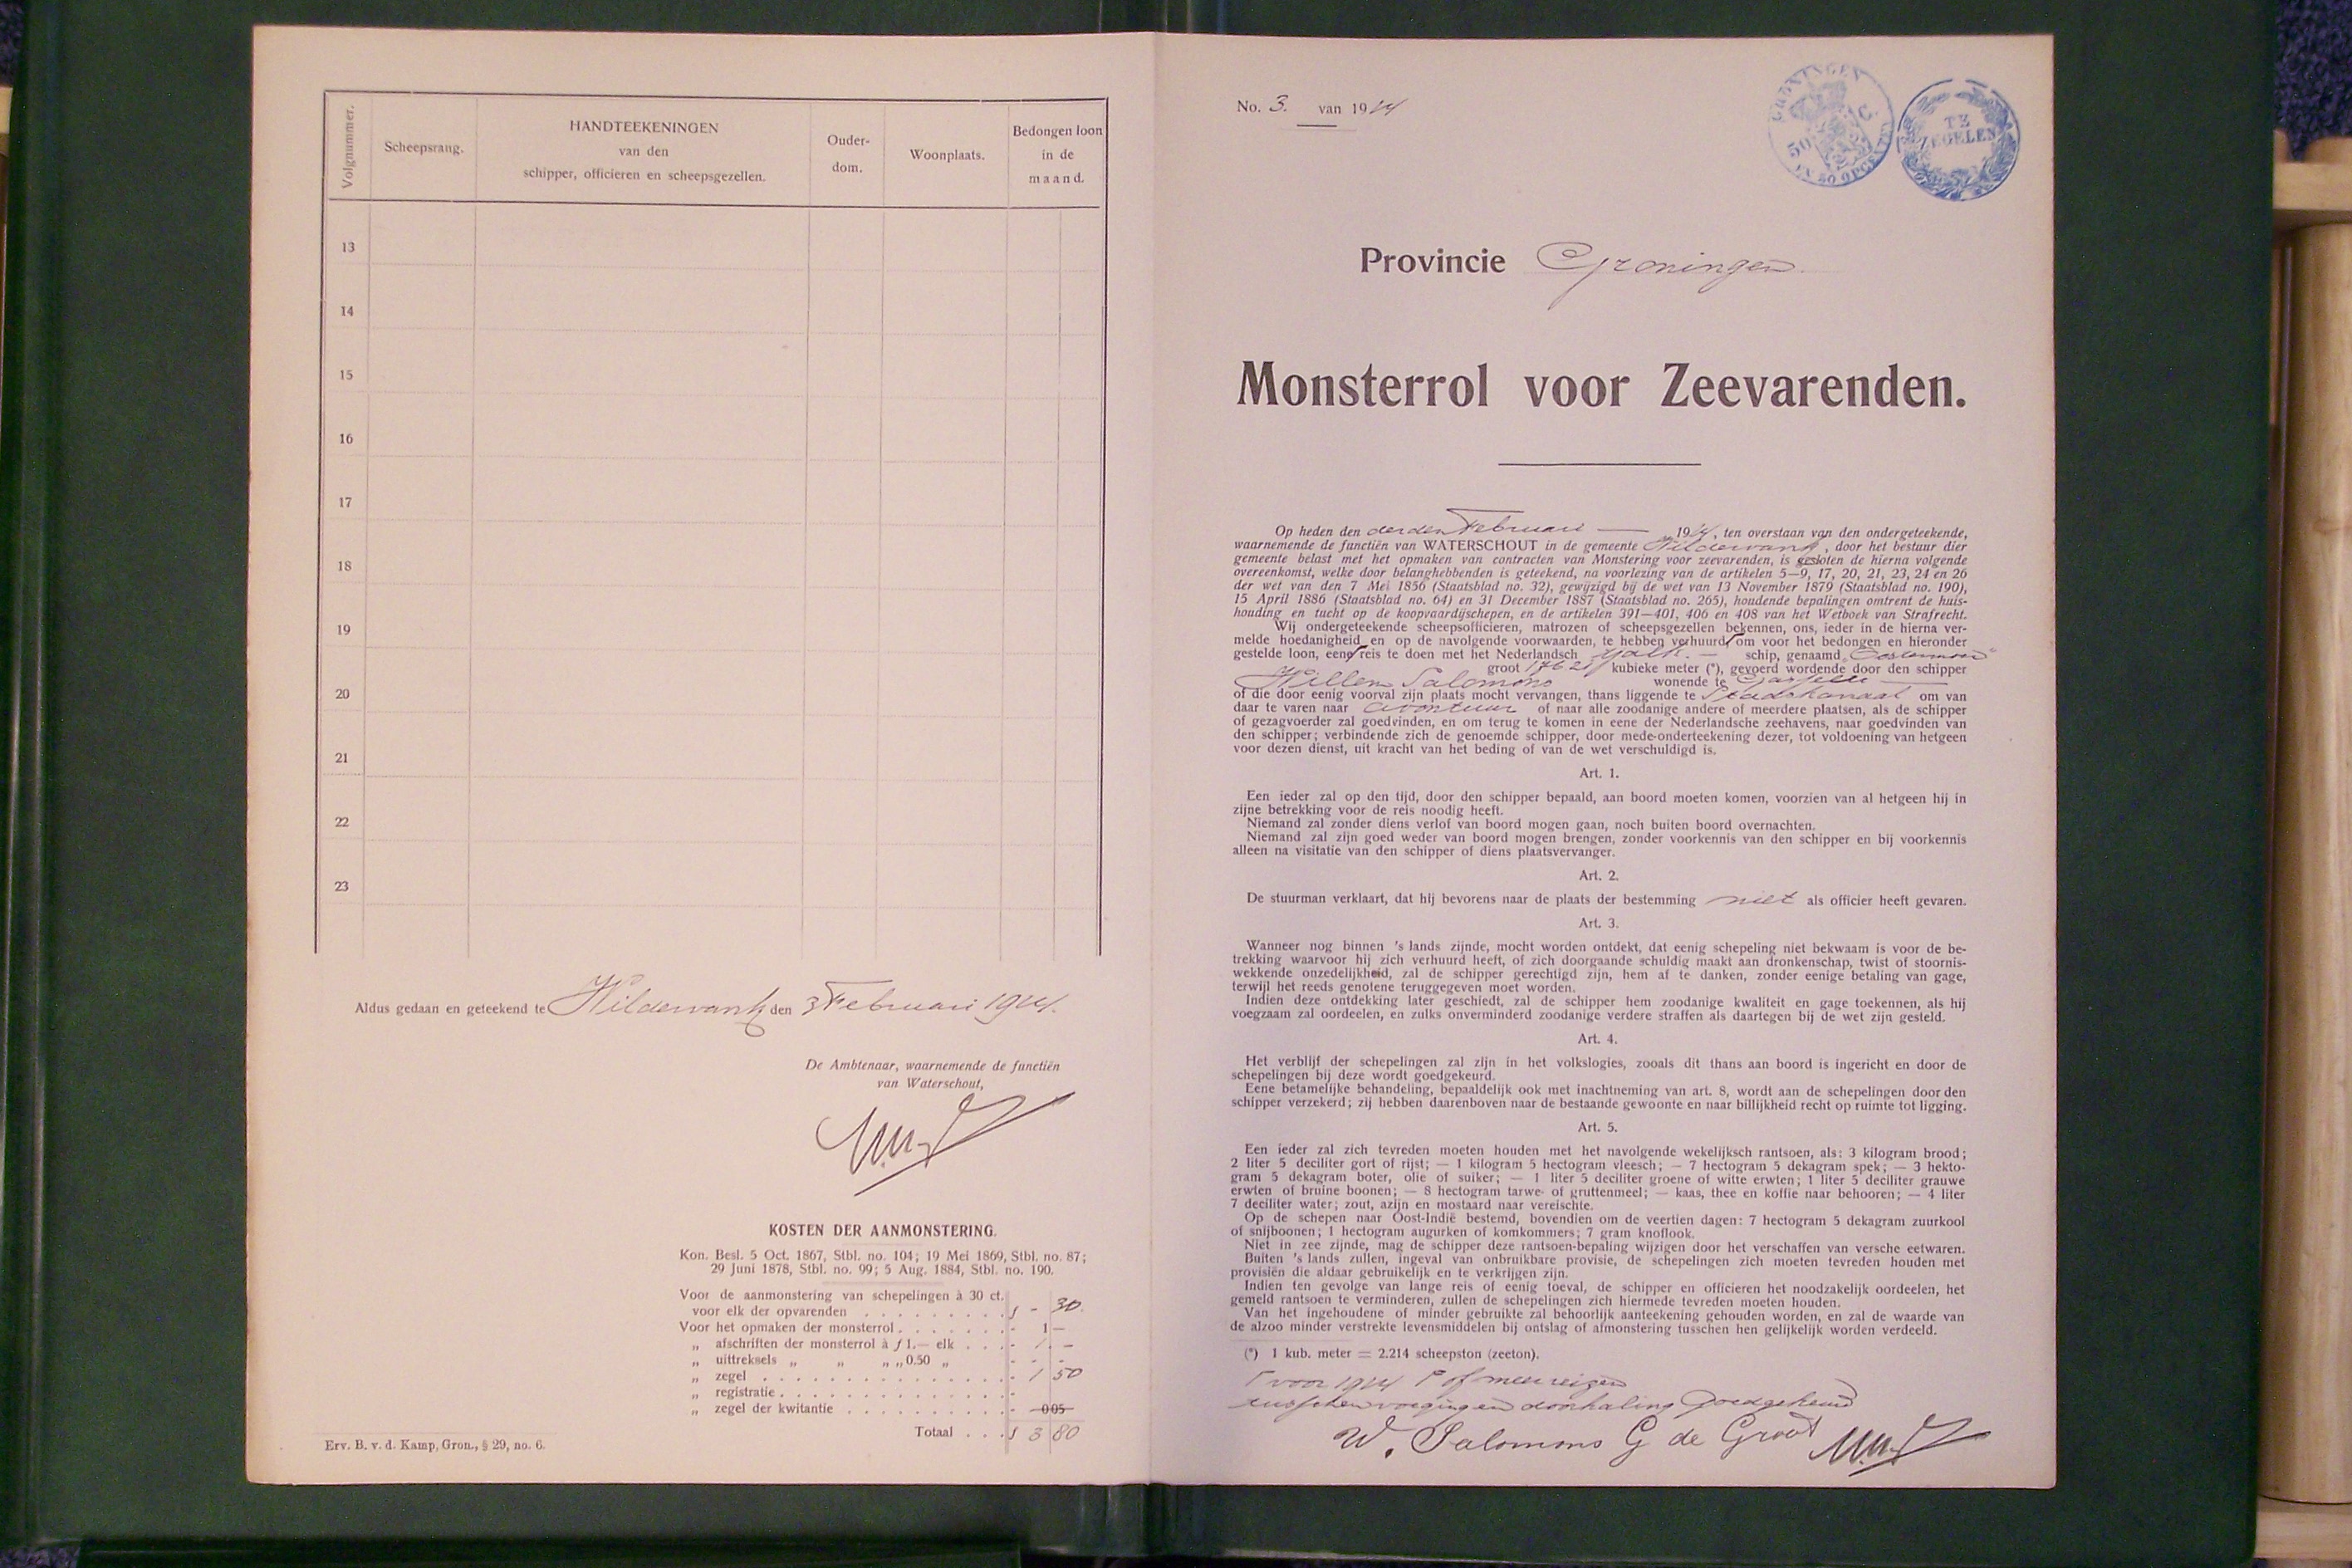 Volgnummer.
Scheepsrang.
HANDTEEKENINGEN
van den
schipper, officieren en scheepsgezellen.
Ouder-
dom.
Woonplaats.
Bedongen loon
in de
maand.
13
14
15
16
17
18
19
20
21
22
23
Aldus gedaan en geteekend te Wildervank den 3 Februari 1914.
De Ambtenaar, waarnemende de functiën
van Waterschout,
KOSTEN DER AANMONSTERING.
Kon. Besl. 5 Oct. 1867, Stbl. no. 104; 19 Mei 1869, Stbl. no. 87;
29 Juni 1878, Stbl. no. 99; 5 Aug. 1884, Stbl. no. 190.
Voor de aanmonstering van schepelingen à 30 ct.
voor elk der opvarenden . . . . . . . . . . f - 30.
Voor het opmaken der monsterrol . . . . . . . - 1 —
„ afschriften der monsterrol à f 1.— elk . . . - 1. —
„ uittreksels „ „ „ „ 0.50 „ - - -
„ zegel . . . . . . . . . . . . . . . . - 1 50
„ registratie . . . . . . . . . . . . . . -
„ zegel der kwitantie . . . . . . . . . . - 0 05
Totaal . . . f 3 80
Erv. B. v. d. Kamp, Gron., § 29, no. 6.
No. 3. van 1914
GRONINGEN
50 C.
EN 50 OPCENTEN
TE
ZEGELEN
Provincie Groningen.
Monsterrol voor Zeevarenden.
Op heden den derden Februari — 1914, ten overstaan van den ondergeteekende,
waarnemende de functiën van WATERSCHOUT in de gemeente Wildervank, door het bestuur dier
gemeente belast met het opmaken van contracten van Monstering voor zeevarenden, is gesloten de hierna volgende
overeenkomst, welke door belanghebbenden is geteekend, na voorlezing van de artikelen 5—9, 17, 20, 21, 23, 24 en 26
der wet van den 7 Mei 1856 (Staatsblad no. 32), gewijzigd bij de wet van 13 November 1879 (Staatsblad no. 190),
15 April 1886 (Staatsblad no. 64) en 31 December 1887 (Staatsblad no. 265), houdende bepalingen omtrent de huis-
houding en tucht op de koopvaardijschepen, en de artikelen 391—401, 406 en 408 van het Wetboek van Strafrecht.
Wij ondergeteekende scheepsofficieren, matrozen of scheepsgezellen bekennen, ons, ieder in de hierna ver-
melde hoedanigheid en op de navolgende voorwaarden, te hebben verhuurd om voor het bedongen en hieronder
gestelde loon, eene reis te doen met het Nederlandsch tjalk. — schip, genaamd
groot kubieke meter (*), gevoerd wordende door den schipper
Willem Salomons wonende te Gasselte —
of die door eenig voorval zijn plaats mocht vervangen, thans liggende te Stadskanaal om van
daar te varen naar avontuur of naar alle zoodanige andere of meerdere plaatsen, als de schipper
of gezagvoerder zal goedvinden, en om terug te komen in eene der Nederlandsche zeehavens, naar goedvinden van
den schipper; verbindende zich de genoemde schipper, door mede-onderteekening dezer, tot voldoening van hetgeen
voor dezen dienst, uit kracht van het beding of van de wet verschuldigd is.
Art. 1.
Een ieder zal op den tijd, door den schipper bepaald, aan boord moeten komen, voorzien van al hetgeen hij in
zijne betrekking voor de reis noodig heeft.
Niemand zal zonder diens verlof van boord mogen gaan, noch buiten boord overnachten.
Niemand zal zijn goed weder van boord mogen brengen, zonder voorkennis van den schipper en bij voorkennis
alleen na visitatie van den schipper of diens plaatsvervanger.
Art. 2.
De stuurman verklaart, dat hij bevorens naar de plaats der bestemming niet als officier heeft gevaren.
Art. 3.
Wanneer nog binnen 's lands zijnde, mocht worden ontdekt, dat eenig schepeling niet bekwaam is voor de be-
trekking waarvoor hij zich verhuurd heeft, of zich doorgaande schuldig maakt aan dronkenschap, twist of stoornis-
wekkende onzedelijkheid, zal de schipper gerechtigd zijn, hem af te danken, zonder eenige betaling van gage,
terwijl het reeds genotene teruggegeven moet worden.
Indien deze ontdekking later geschiedt, zal de schipper hem zoodanige kwaliteit en gage toekennen, als hij
voegzaam zal oordeelen, en zulks onverminderd zoodanige verdere straffen als daartegen bij de wet zijn gesteld.
Art. 4.
Het verblijf der schepelingen zal zijn in het volkslogies, zooals dit thans aan boord is ingericht en door de
schepelingen bij deze wordt goedgekeurd.
Eene betamelijke behandeling, bepaaldelijk ook met inachtneming van art. 8, wordt aan de schepelingen door den
schipper verzekerd; zij hebben daarenboven naar de bestaande gewoonte en naar billijkheid recht op ruimte tot ligging.
Art. 5.
Een ieder zal zich tevreden moeten houden met het navolgende wekelijksch rantsoen, als: 3 kilogram brood;
2 liter 5 deciliter gort of rijst; — 1 kilogram 5 hectogram vleesch; — 7 hectogram 5 dekagram spek; — 3 hekto-
gram 5 dekagram boter, olie of suiker; — 1 liter 5 deciliter groene of witte erwten; 1 liter 5 deciliter grauwe
erwten of bruine boonen; — 8 hectogram tarwe- of gruttenmeel; — kaas, thee en koffie naar behooren; — 4 liter
7 deciliter water; zout, azijn en mostaard naar vereischte.
Op de schepen naar Oost-Indië bestemd, bovendien om de veertien dagen: 7 hectogram 5 dekagram zuurkool
of snijboonen; 1 hectogram augurken of komkommers; 7 gram knoflook.
Niet in zee zijnde, mag de schipper deze rantsoen-bepaling wijzigen door het verschaffen van versche eetwaren.
Buiten 's lands zullen, ingeval van onbruikbare provisie, de schepelingen zich moeten tevreden houden met
provisiën die aldaar gebruikelijk en te verkrijgen zijn.
Indien ten gevolge van lange reis of eenig toeval, de schipper en officieren het noodzakelijk oordeelen, het
gemeld rantsoen te verminderen, zullen de schepelingen zich hiermede tevreden moeten houden.
Van het ingehoudene of minder gebruikte zal behoorlijk aanteekening gehouden worden, en zal de waarde van
de alzoo minder verstrekte levensmiddelen bij ontslag of afmonstering tusschen hen gelijkelijk worden verdeeld.
(*) 1 kub. meter = 2.214 scheepston (zeeton).
voor 1914 of meer reizen
tusschenvoeging en doorhaling goedgekeurd
W. Salomons G de Groot